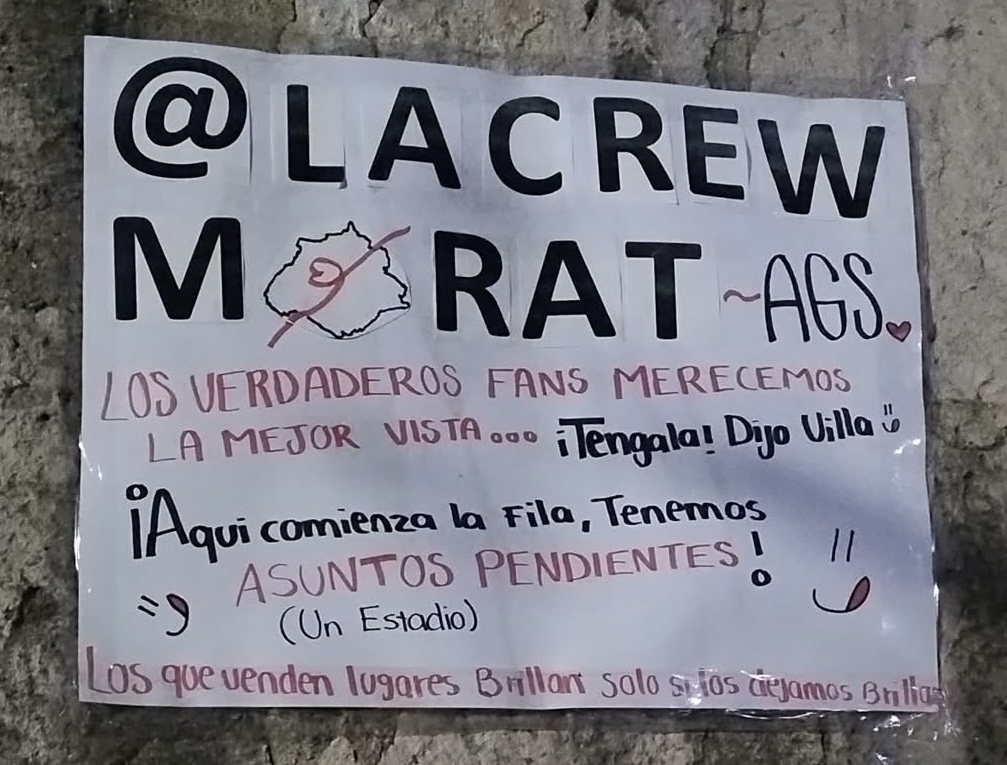 @LACREW
MORAT ~AGS.
LOS VERDADEROS FANS MERECEMOS
LA MEJOR VISTA... ¡Tengala! Dijo Villa
¡Aqui comienza la Fila, Tenemos
ASUNTOS PENDIENTES!
(Un Estadio)
Los que venden lugares Brillan solo si los dejamos Brillar